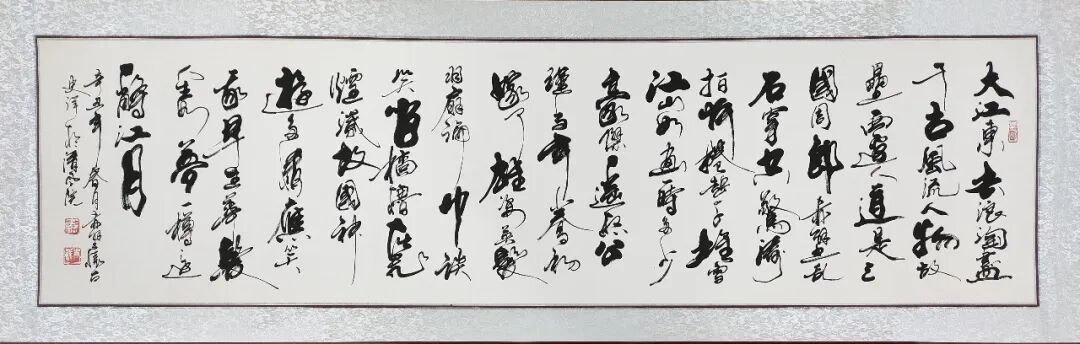 大江東去浪淘盡
千古風流人物故
壘西邊人道是三
國周郎赤壁亂
石穿空驚濤
拍岸捲起千堆雪
江山如畫一時多少
豪傑遙想公
瑾當年小喬初
嫁了雄姿英發
羽扇綸巾談
笑間檣櫓灰飛
煙滅故國神
遊多情應笑
我早生華髮
人間如夢一樽還
酹江月
辛丑年春月